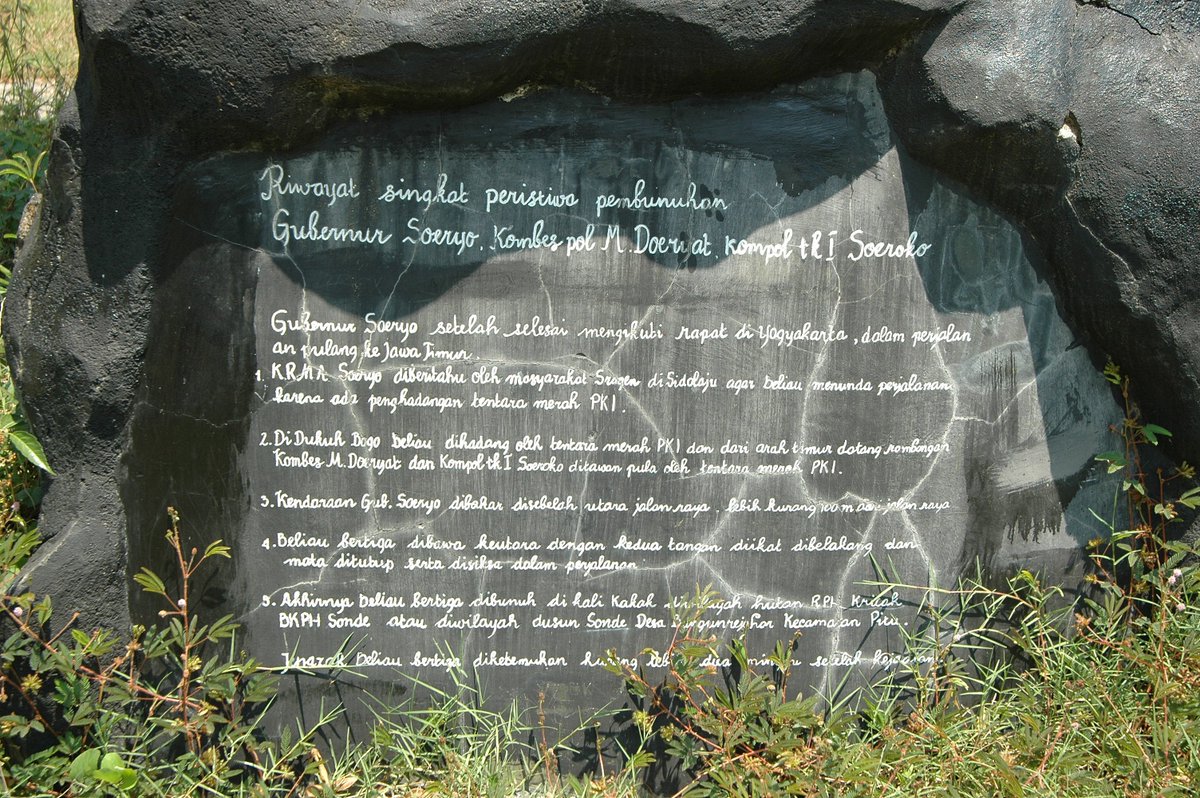 Riwayat singkat peristiwa pembunuhan
Gubernur Soeryo, Kombes pol M. Doeryat, kompol tk I Soeroko
Gubernur Soeryo setelah selesai mengikuti rapat di Yogyakarta, dalam perjalan
an pulang ke Jawa Timur.
1. K.R.M.A Soeryo diberitahu oleh masyarakat Sragen di Sidolaju agar beliau menunda perjalanan
karena ada penghadangan tentara merah PKI.
2. Di Dukuh Dogo beliau dihadang oleh tentara merah PKI dan dari arah timur datang rombongan
Kombes M. Doeryat dan Kompol tk I Soeroko ditawan pula oleh tentara merah PKI.
3. Kendaraan Gub. Soeryo dibakar disebelah utara jalan raya, lebih kurang 100 m dari jalan raya
4. Beliau bertiga dibawa keutara dengan kedua tangan diikat dibelakang dan
mata ditutup serta disiksa dalam perjalanan
5. Akhirnya beliau bertiga dibunuh di kali Kakak wilayah hutan RPH
BKPH Sonde atau diwilayah dusun Sonde Desa Kecamatan Pitu.
Jnazah beliau bertiga diketemukan kurang lebih dua minggu setelah kejadian.